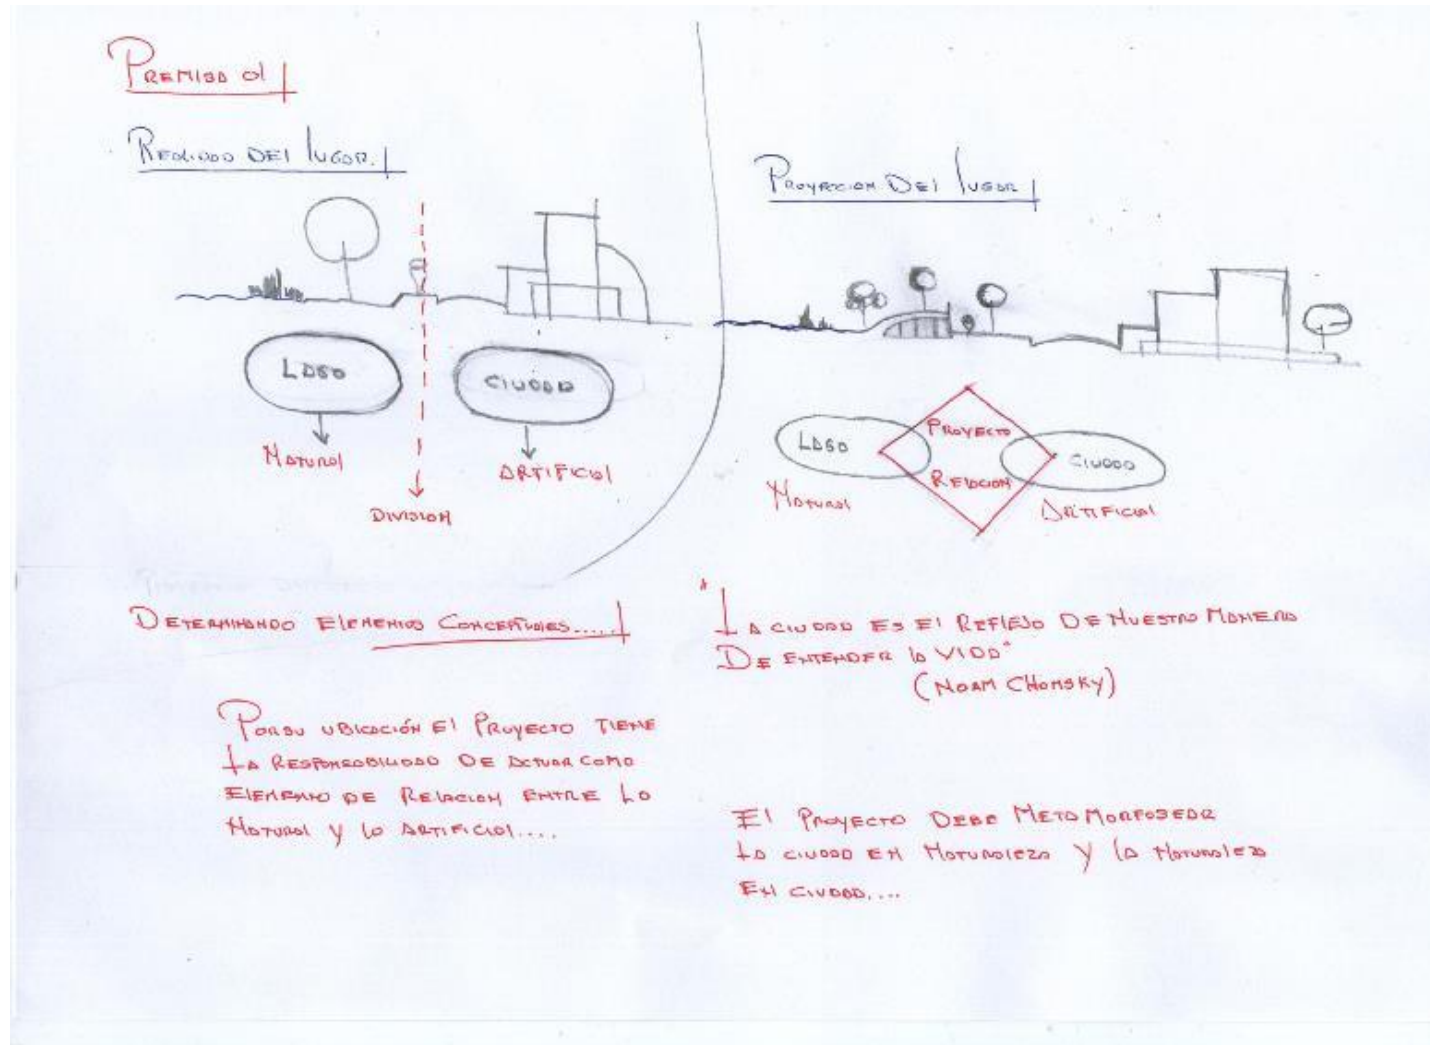 PREMISA 01
REALIDAD DEL LUGAR.
LAGO
CIUDAD
NATURAL
ARTIFICIAL
DIVISION
PROYECCION DEL LUGAR
PROYECTO
LAGO
CIUDAD
RELACION
NATURAL
ARTIFICIAL
DETERMINANDO ELEMENTOS CONCEPTUALES.....
POR SU UBICACIÓN El PROYECTO TIENE
LA RESPONSABILIDAD DE ACTUAR COMO
ELEMENTO DE RELACION ENTRE LO
NATURAL Y LO ARTIFICIAL....
"LA CIUDAD ES El REFLEJO DE NUESTRA MANERA
DE ENTENDER LA VIDA"
(NOAM CHOMSKY)
El PROYECTO DEBE METAMORFOSEAR
LA CIUDAD EN NATURALEZA Y LA NATURALEZA
EN CIUDAD....